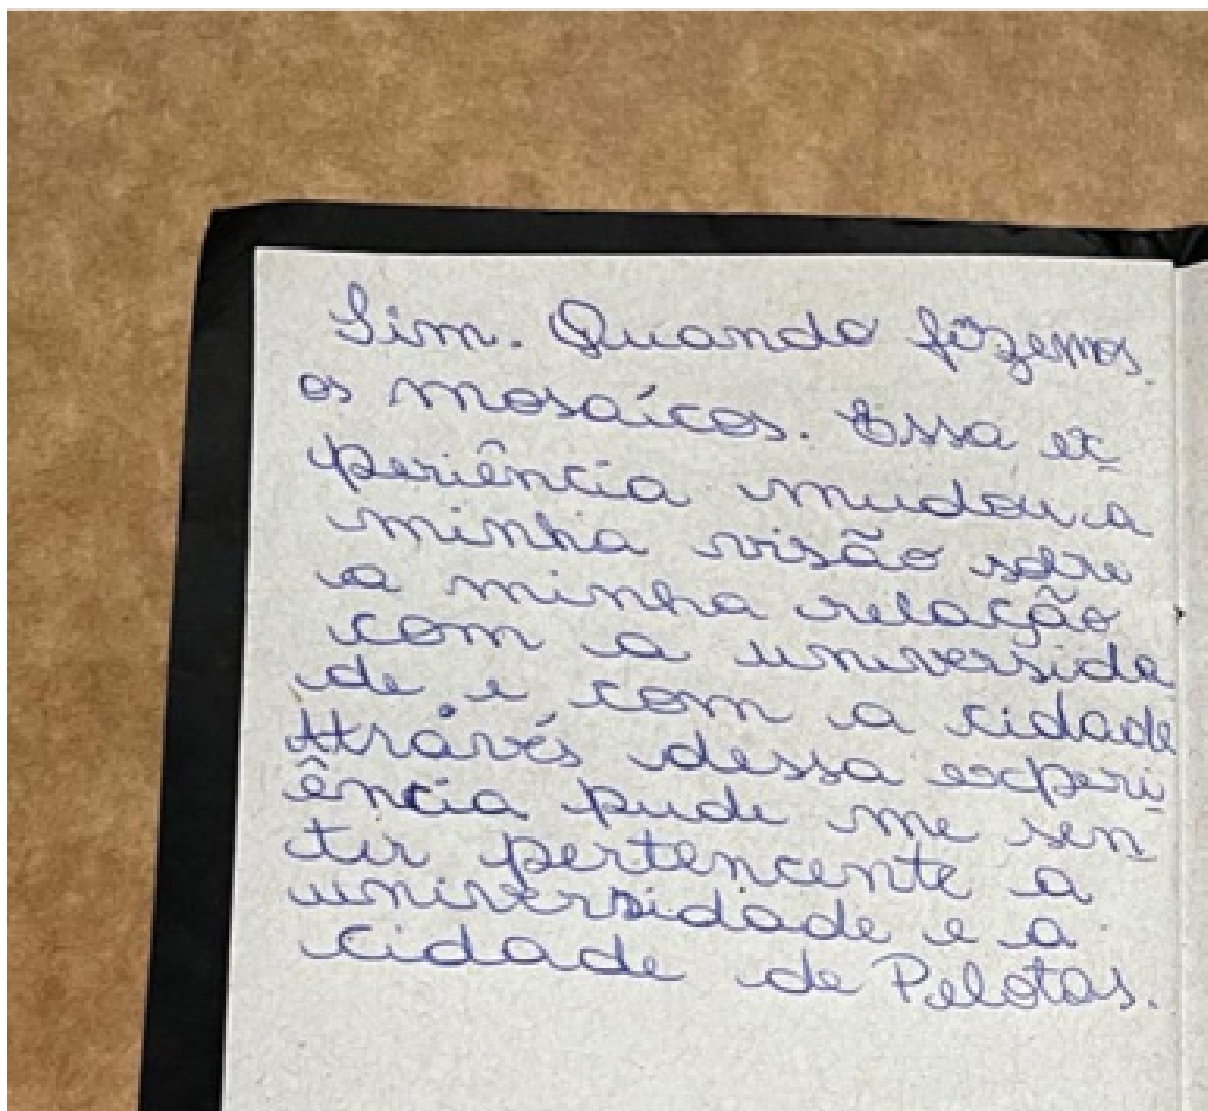 Sim. Quando fizemos
os mosaícos. Essa ex-
periência mudou a
minha visão sobre
a minha relação
com a universida
de e com a cidade
Através dessa experi-
ência pude me sen-
tir pertencente a
universidade e a
cidade de Pelotas.